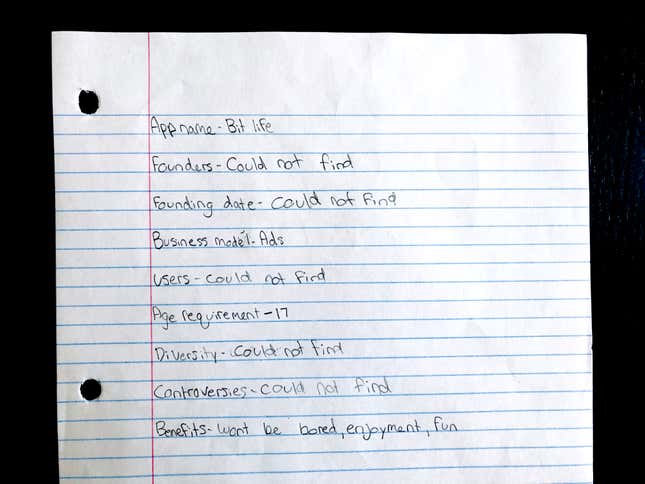 App name - Bit life
Founders - Could not find
Founding date - Could not Find
Business model - Ads
Users - Could not find
Age requirement - 17
Diversity - Could not find
Controversies - Could not find
Benefits - Wont be bored, enjoyment, fun